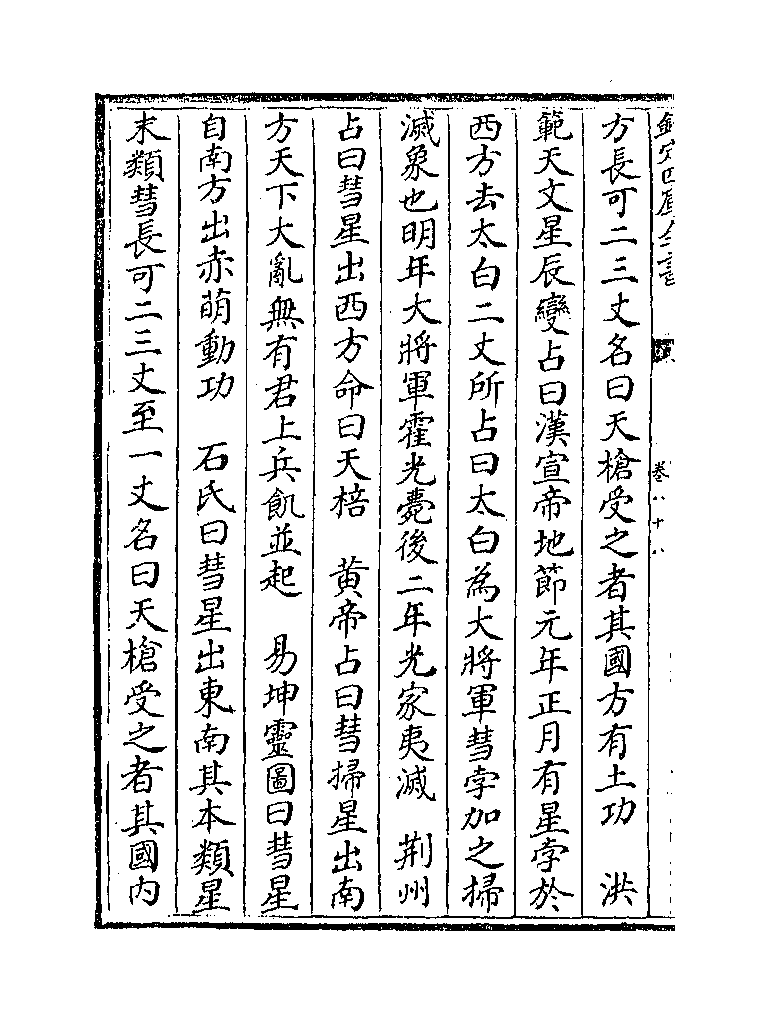 欽定四庫全書 卷八十八
方長可二三丈名曰天槍受之者其國方有土功 洪
範天文星辰變占曰漢宣帝地節元年正月有星孛於
西方去太白二丈所占曰太白為大將軍彗孛加之掃
滅象也明年大將軍霍光薨後二年光家夷滅 荆州
占曰彗星出西方命曰天棓 黄帝占曰彗掃星出南
方天下大亂無有君上兵飢並起 易坤靈圖曰彗星
自南方出赤萌動功 石氏曰彗星出東南其本類星
末類彗長可二三丈至一丈名曰天槍受之者其國内